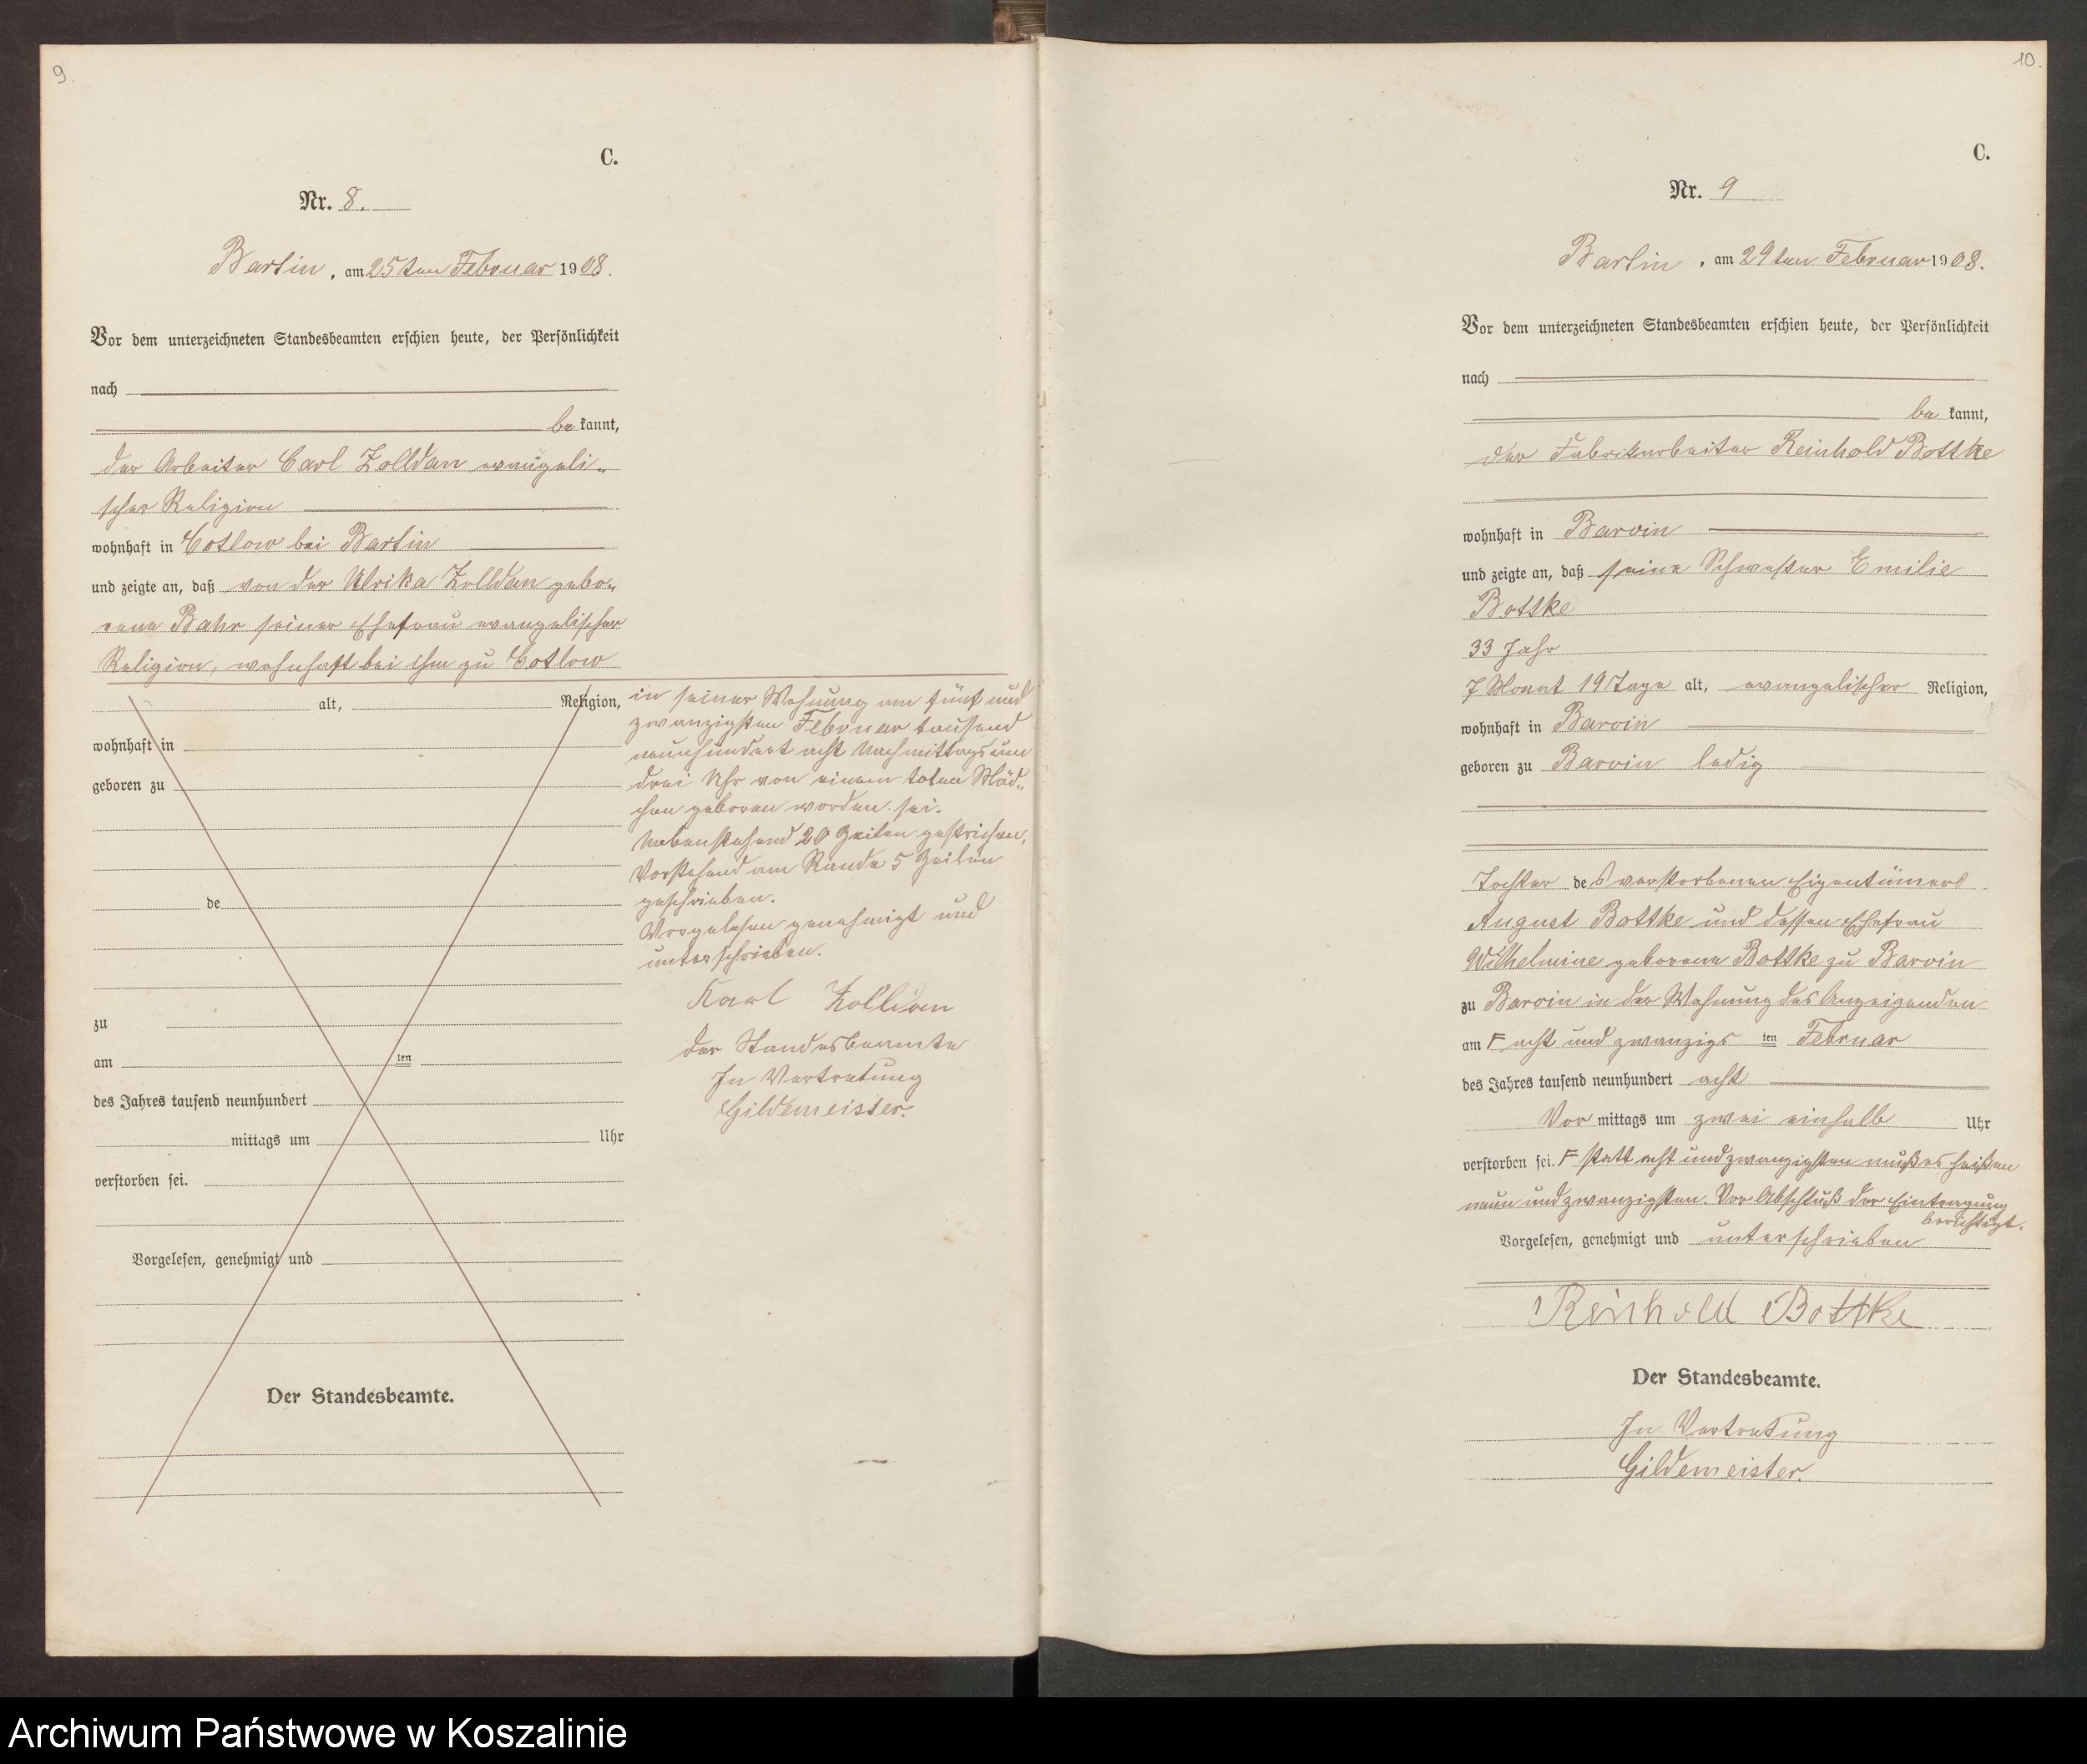 9.
C.
Nr. 8.
Bartin, am 25ten Februar 1908.
Vor dem unterzeichneten Standesbeamten erschien heute, der Persönlichkeit
nach
be kannt,
der Arbeiter Carl Zolldan evangeli-
scher Religion
wohnhaft in Cotlow bei Bartin
und zeigte an, daß von der Ulrika Zolldan gebo-
rene Bahr seiner Ehefrau evangelischer
Religion, wohnhaft bei ihm zu Cotlow
alt, Religion,
wohnhaft in
geboren zu
de
zu
am ten
des Jahres tausend neunhundert
mittags um Uhr
verstorben sei.
Vorgelesen, genehmigt und
Der Standesbeamte.
in seiner Wohnung am fünf und
zwanzigsten Februar tausend
neunhundert acht Nachmittags um
drei Uhr von einem toten Mäd-
chen geboren worden sei.
Nebenstehend 20 Zeilen gestrichen,
Vorstehend am Rande 5 Zeilen
geschrieben.
Vorgelesen genehmigt und
unterschrieben.
Karl Zolldan
der Standesbeamte
In Vertretung
Gildemeister.
10.
C.
Nr. 9
Bartin, am 29ten Februar 1908.
Vor dem unterzeichneten Standesbeamten erschien heute, der Persönlichkeit
nach
be kannt,
der Fabrikarbeiter Reinhold Bottke
wohnhaft in Barvin
und zeigte an, daß seine Schwester Emilie
Bottke
33 Jahr
7 Monat 19 Tage alt, evangelischer Religion,
wohnhaft in Barvin
geboren zu Barvin ledig
Tochter des verstorbenen Eigentümers
August Bottke und dessen Ehefrau
Wilhelmine geborene Bottke zu Barvin
zu Barvin in der Wohnung des Anzeigenden
am F acht und zwanzigs ten Februar
des Jahres tausend neunhundert acht
Vor mittags um zwei einhalb Uhr
verstorben sei. F statt acht und zwanzigsten muß es heißen
neun und zwanzigsten. Vor Abschluß der Eintragung
berichtigt.
Vorgelesen, genehmigt und unterschrieben
Reinhold Bottke
Der Standesbeamte.
In Vertretung
Gildemeister.
Archiwum Państwowe w Koszalinie